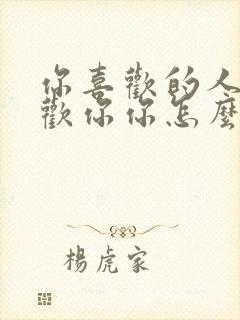 你喜歡的人
歡你你怎麼
楊虎家